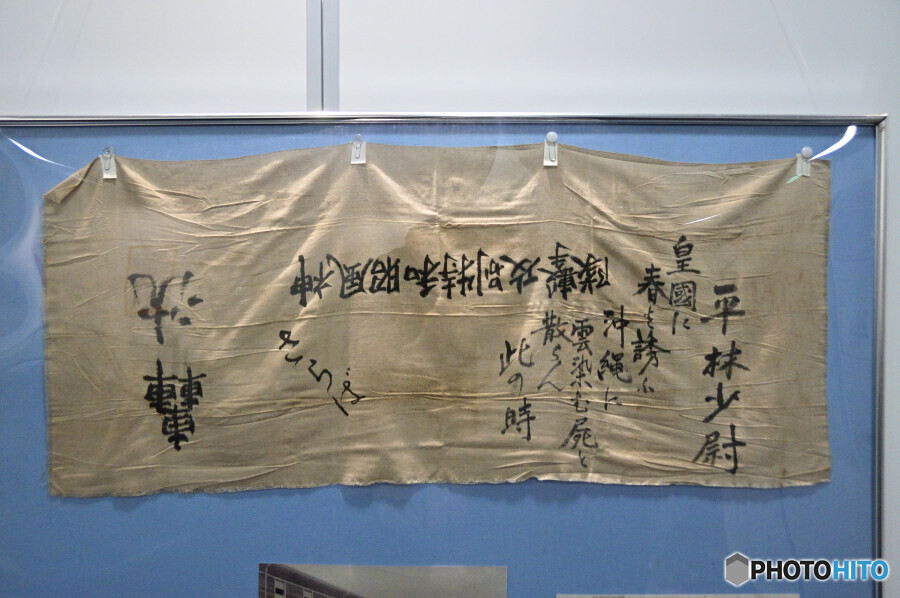 平林少尉
皇國に
春を誘ふ
沖縄に
雲染む屍と
散らん
此の時
神風昭和特別攻撃隊
さらば
轟沈
PHOTOHITO